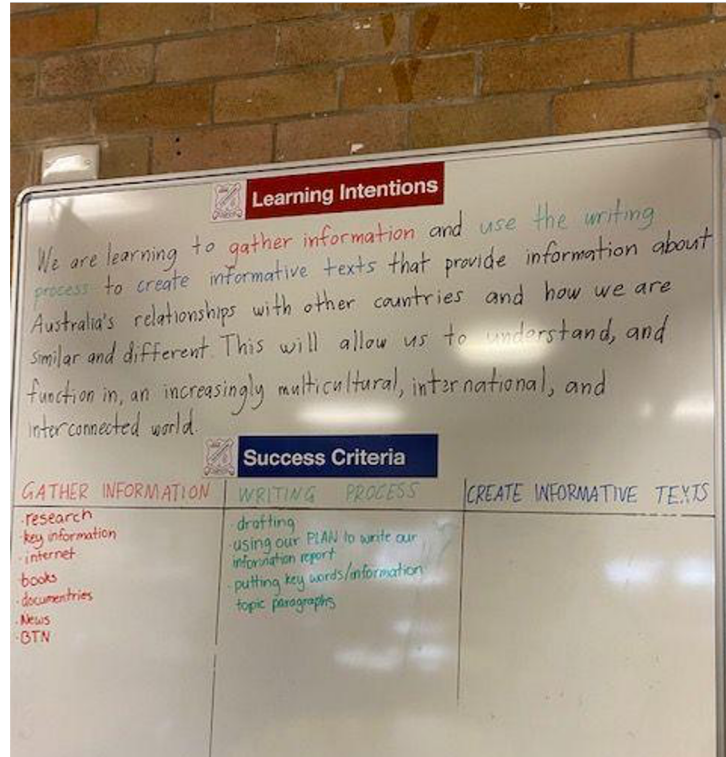 Learning Intentions
We are learning to gather information and use the writing
process to create informative texts that provide information about
Australia's relationships with other countries and how we are
similar and different. This will allow us to understand, and
function in, an increasingly multicultural, international, and
interconnected world.
Success Criteria
GATHER INFORMATION
·research
·key information
·internet
·books
·documentries
·News
·BTN
WRITING PROCESS
drafting
·using our PLAN to write our
information report
·putting key words/information
topic paragraphs
CREATE INFORMATIVE TEXTS